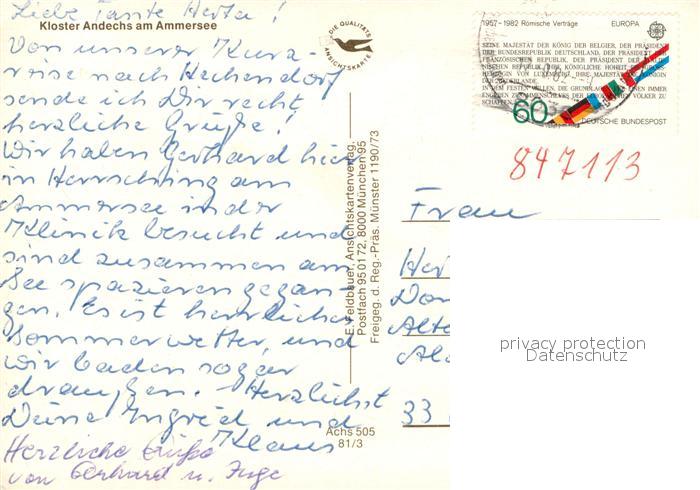 Liebe Tante Herta!
Kloster Andechs am Ammersee
Von unserer Kurz-
reise nach Hechendorf
sende ich Dir recht
herzliche Grüße!
Wir haben Gerhard hier
in Herrsching am
Ammersee in der
Klinik besucht und
sind zusammen am
See spazieren gegan-
gen. Es ist herrliches
Sommerwetter, und
wir baden sogar
draußen. Herzlichst
Deine Ingrid und
Klaus
Herzliche Grüße
von Gerhard u. Inge
Achs 505
81/3
DIE QUALITÄTS
ANSICHTSKARTE
E. Feldbauer, Ansichtskartenverlag,
Postfach 95 0172, 8000 München 95
Freigeg. d. Reg.-Präs. Münster 1190/73
1957-1982 Römische Verträge EUROPA
SEINE MAJESTÄT DER KÖNIG DER BELGIER, DER PRÄSIDENT
DER BUNDESREPUBLIK DEUTSCHLAND, DER PRÄSIDENT DER
FRANZÖSISCHEN REPUBLIK, DER PRÄSIDENT DER ITALIE-
NISCHEN REPUBLIK, IHRE KÖNIGLICHE HOHEIT
HERZOGIN VON LUXEMBURG, IHRE MAJESTÄT KÖNIGIN
DER NIEDERLANDE
IN DEM FESTEN WILLEN, DIE GRUNDLAGEN EINEN IMMER
ENGEREN VÖLKER ZU
SCHAFFEN
60
DEUTSCHE BUNDESPOST
847113
Frau
Her
Alte
33
privacy protection
Datenschutz